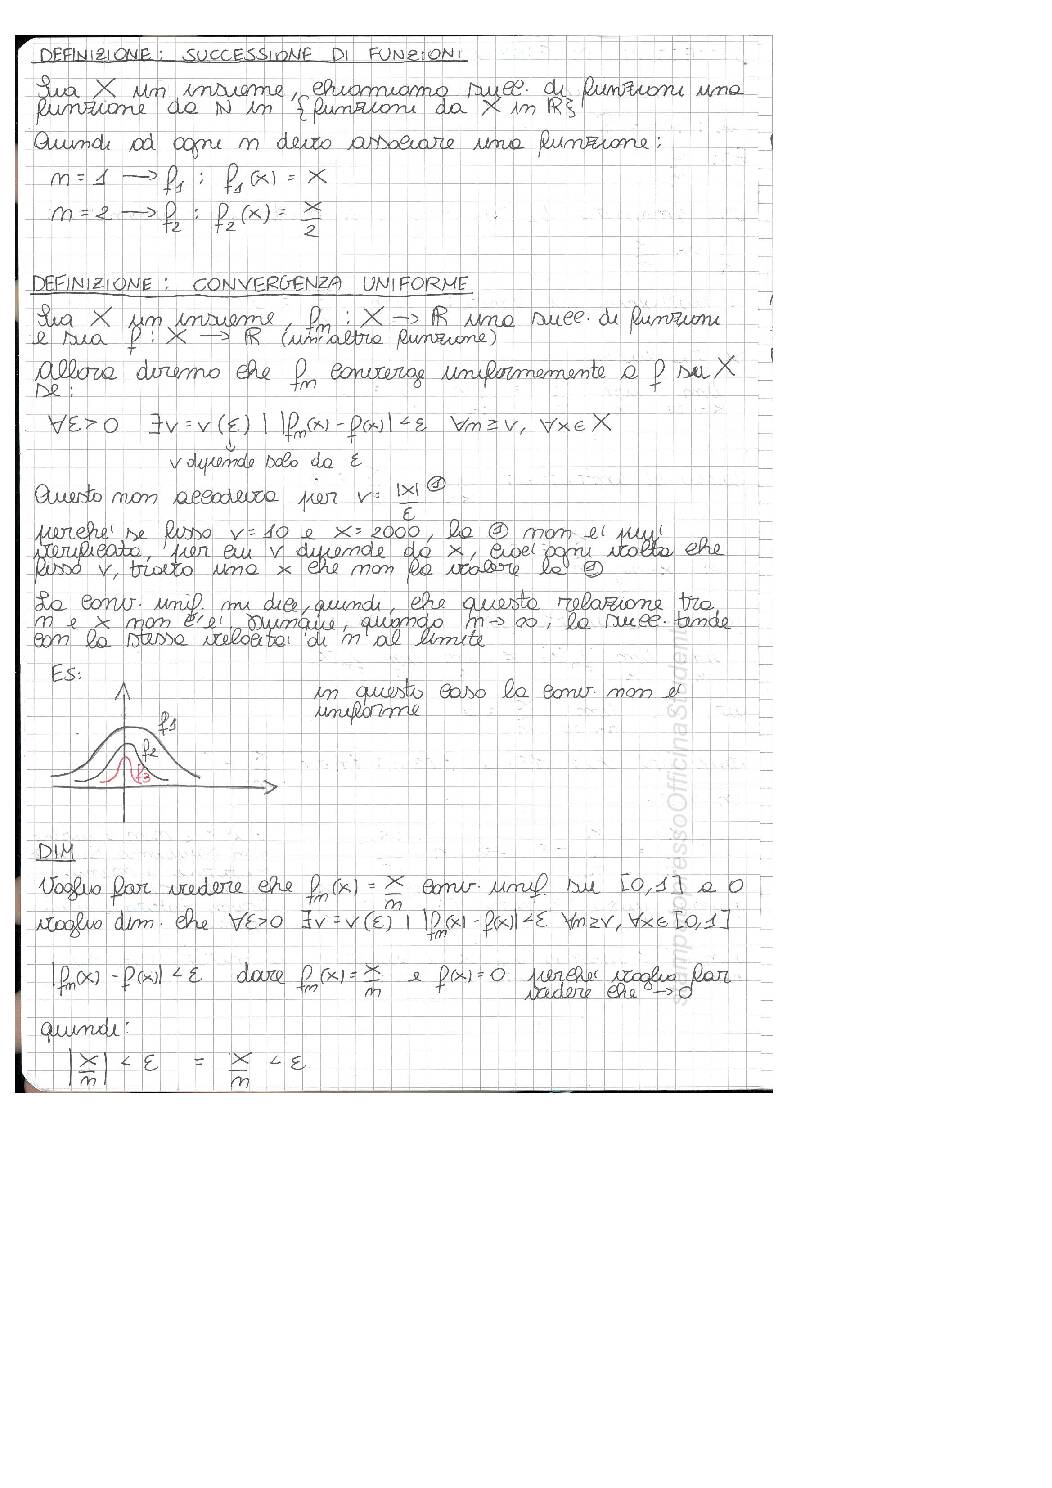 DEFINIZIONE: SUCCESSIONE DI FUNZIONI
Sia X un insieme, chiamiamo succ. di funzioni una
funzione da N in {funzioni da X in ℝ}
Quindi ad ogni n devo associare una funzione:
n = 1 → f₁ : f₁(x) = x
n = 2 → f₂ : f₂(x) = x/2
DEFINIZIONE: CONVERGENZA UNIFORME
Sia X un insieme, fₙ : X → ℝ una succ. di funzioni
e sia f : X → ℝ (un'altra funzione)
Allora diremo che fₙ converge uniformemente a f su X
se:
∀ε > 0 ∃ν = ν(ε) | |fₙ(x) - f(x)| < ε ∀n ≥ ν, ∀x ∈ X
↓
ν dipende solo da ε
Questo non accadeva per ν = |x|/ε ①
perché se fisso ν = 10 e x = 2000, la ① non è più
verificata, per cui ν dipende da x, cioè ogni volta che
fisso ν, trovo una x che non fa valere la ①
La conv. unif. mi dice, quindi, che questa relazione tra
n e x non c'è, dunque, quando n → ∞, la succ. tende
con la stessa velocità di n al limite
ES:
in questo caso la conv. non è
uniforme
f₁
f₂
f₃
DIM
Voglio far vedere che fₙ(x) = x/n conv. unif. su [0,1] a 0
voglio dim. che ∀ε>0 ∃ν = ν(ε) | |fₙ(x) - f(x)| < ε ∀n ≥ ν, ∀x ∈ [0,1]
|fₙ(x) - f(x)| < ε dove fₙ(x) = x/n e f(x) = 0 perché voglio far
vedere che → 0
quindi:
|x/n| < ε = x/n < ε